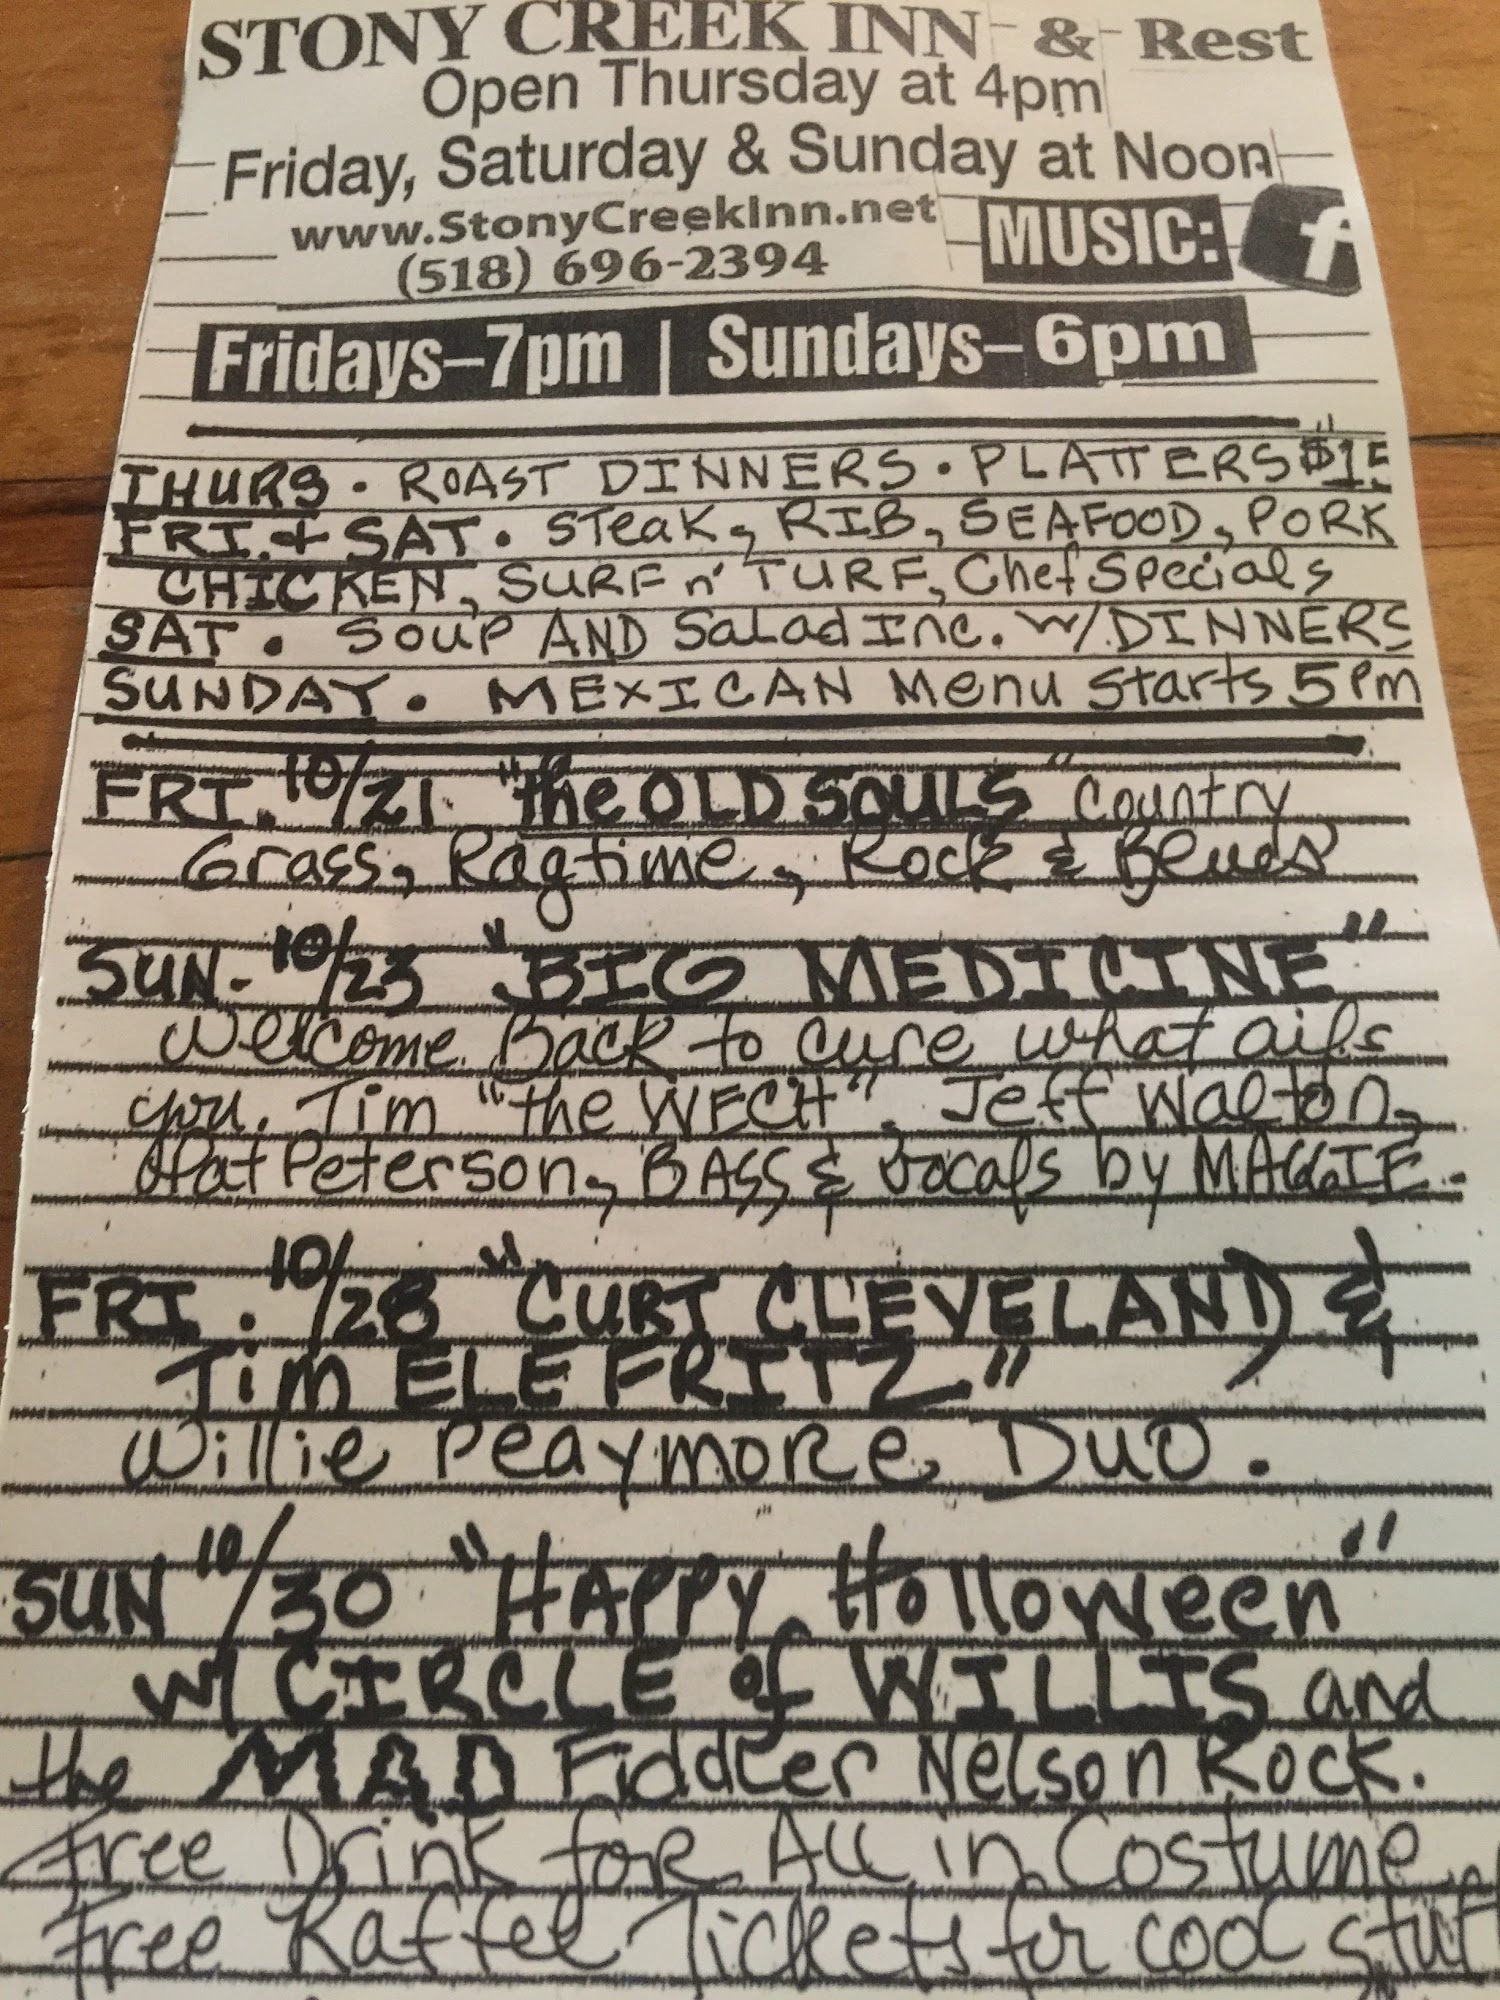 STONY CREEK INN & Rest
Open Thursday at 4pm
Friday, Saturday & Sunday at Noon
www.StonyCreekInn.net
(518) 696-2394
MUSIC: f
Fridays–7pm | Sundays–6pm
THURS • ROAST DINNERS • PLATTERS
FRI. + SAT • STeaK, RIB, SEAFOOD, PORK
CHICKEN, SURF n' TURF, Chef Specials
SAT • SOUP AND SaLad Inc. w/ DINNERS
SUNDAY • MEXICAN Menu Starts 5pm
FRI. 10/21 "the OLD SOULS" Country
Grass, Ragtime, Rock & Blues
SUN. 10/23 "BIG MEDICINE"
Welcome Back to cure what ails
you. Tim "the WECH". Jeff Walton,
Pat Peterson, BASS & Vocals by MAGGIE.
FRI. 10/28 "CURT CLEVELAND &
Tim ELEFRITZ"
Willie Playmore Duo.
SUN 10/30 "HAPPY Holloween"
w/ CIRCLE of WILLIS and
the MAD Fiddler Nelson Rock.
Free Drink for All in Costume
Free Raffle Tickets for cool stuff